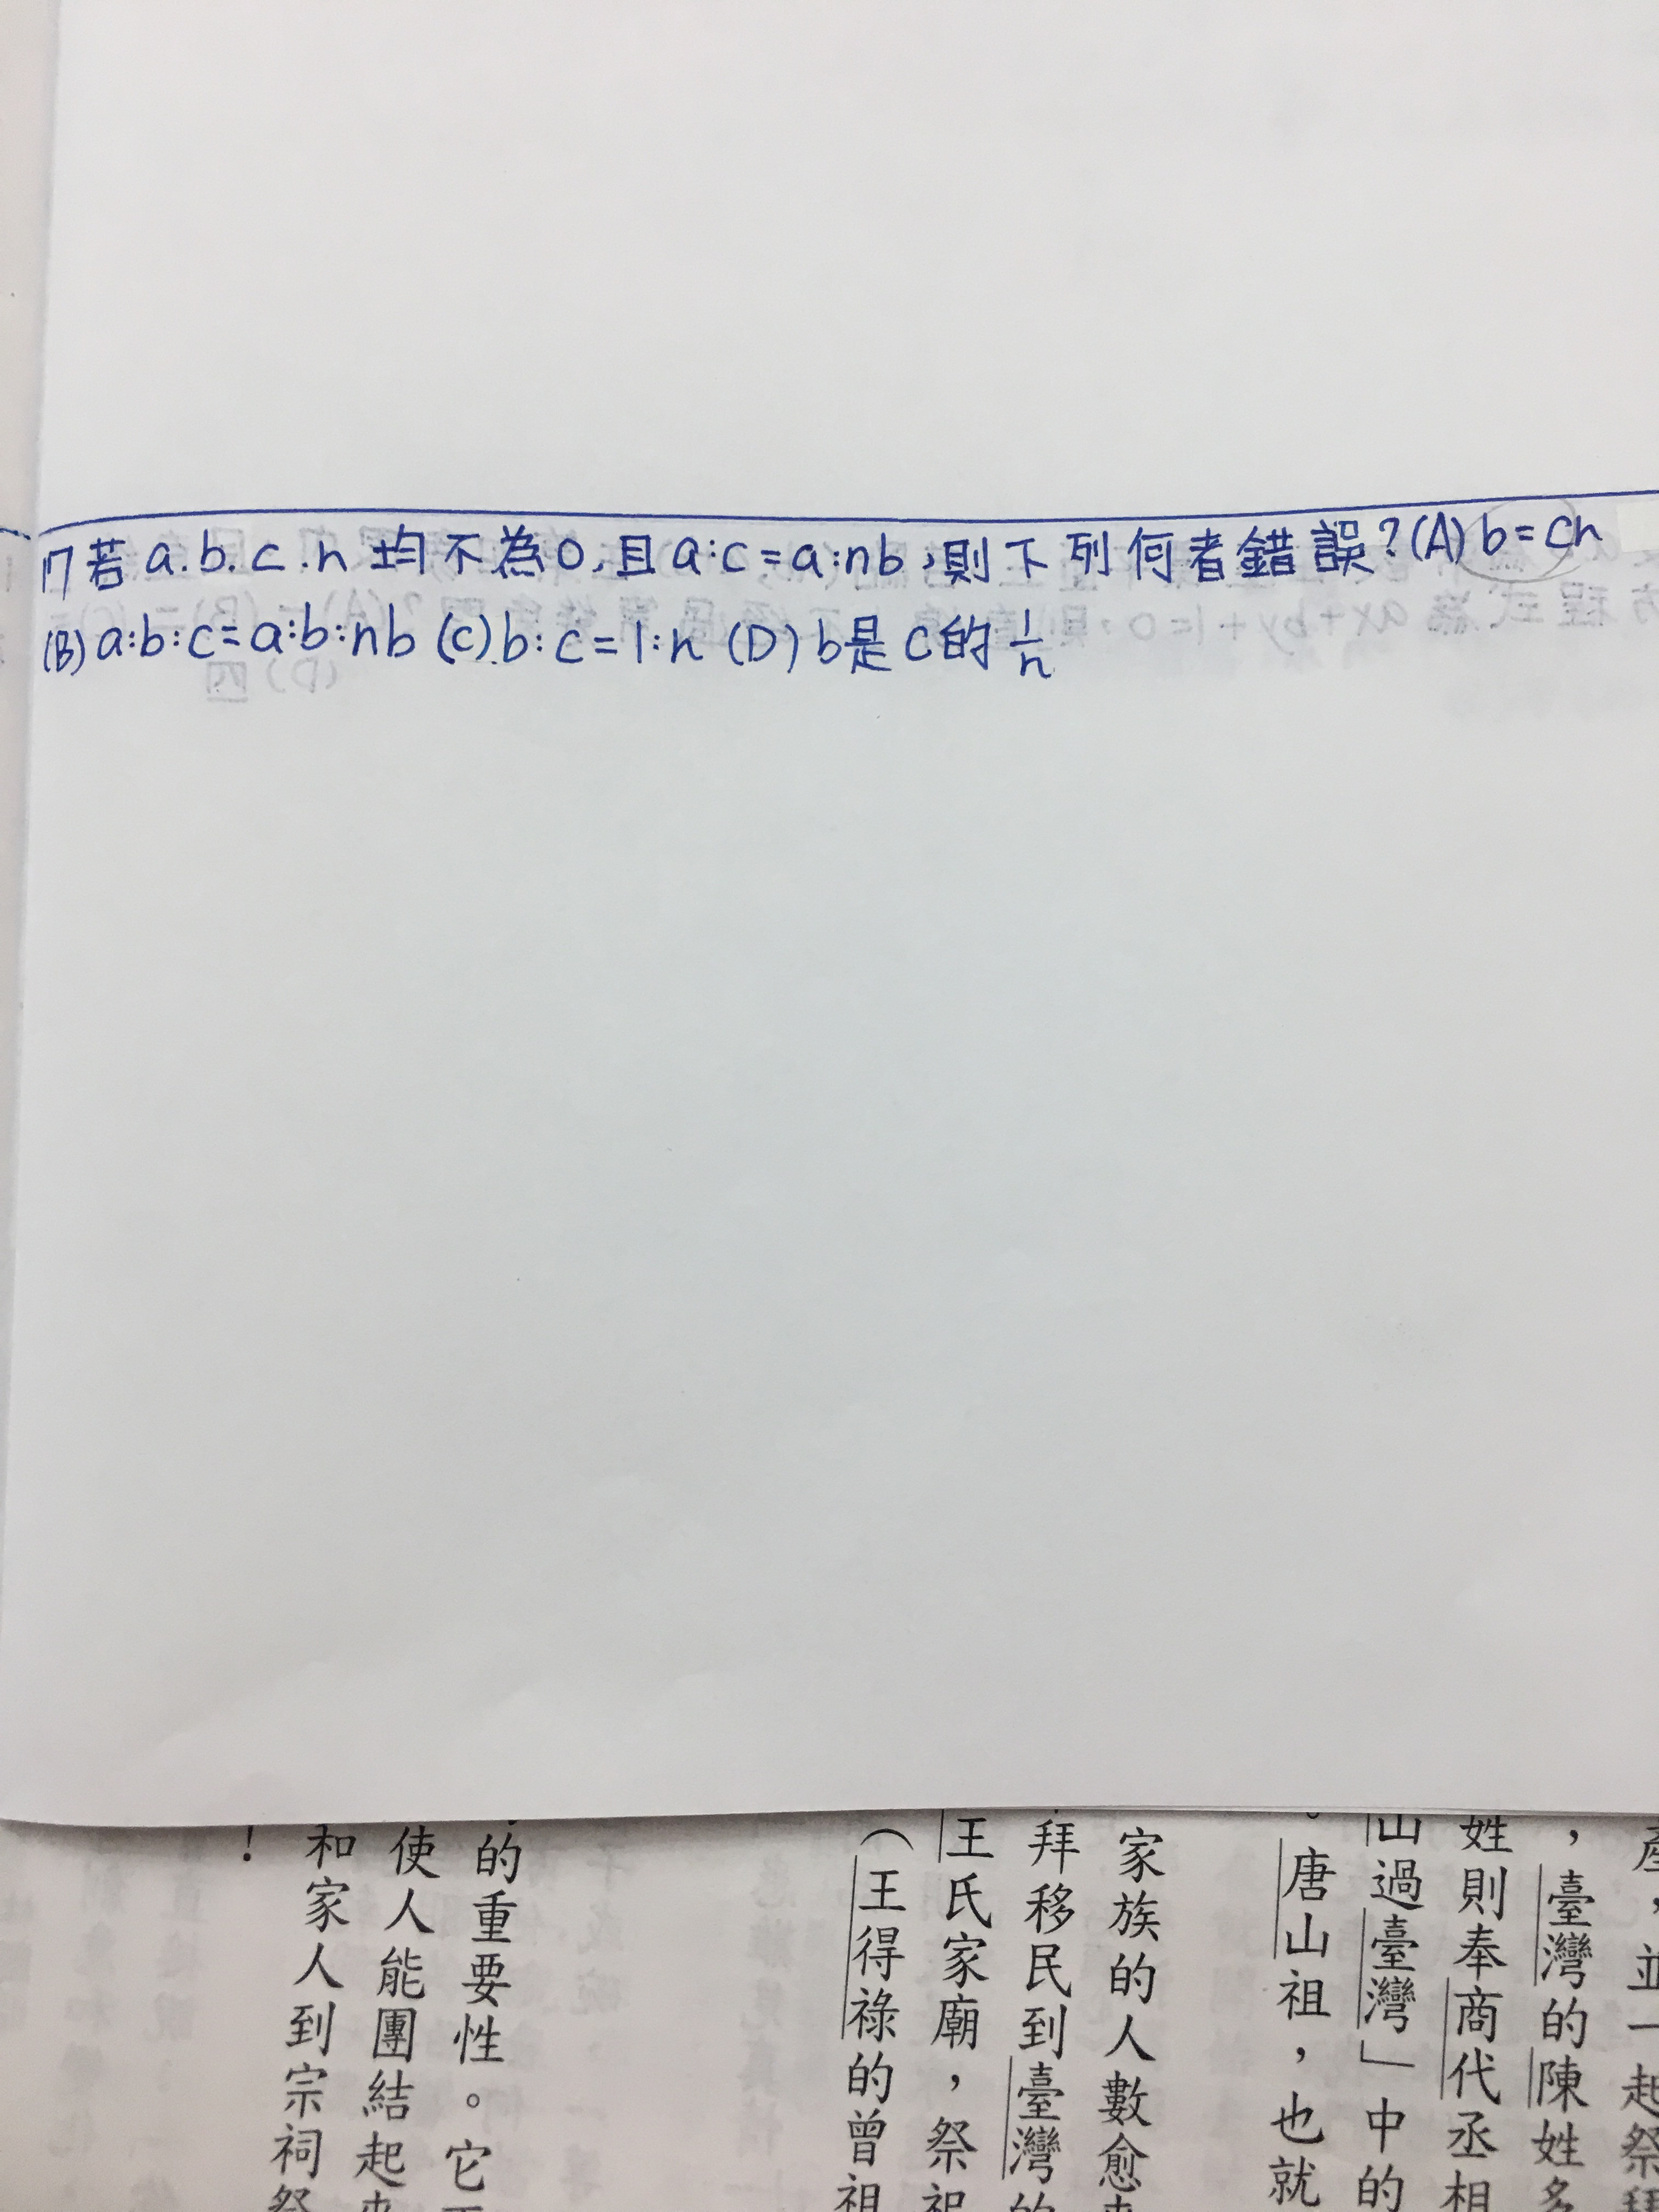 17 若 a.b.c.n 均不為0,且a:c=a:nb,則下列何者錯誤?(A)b=cn
(B)a:b:c=a:b:nb (C).b:c=1:n (D)b是c的1/n
產,並一起祭
,臺灣的陳姓多
姓則奉商代丞相
山過臺灣」中的
。唐山祖,也就
家族的人數愈
拜移民到臺灣的
王氏家廟,祭祀
(王得祿的曾祖
的重要性。它
使人能團結起
和家人到宗祠祭
!